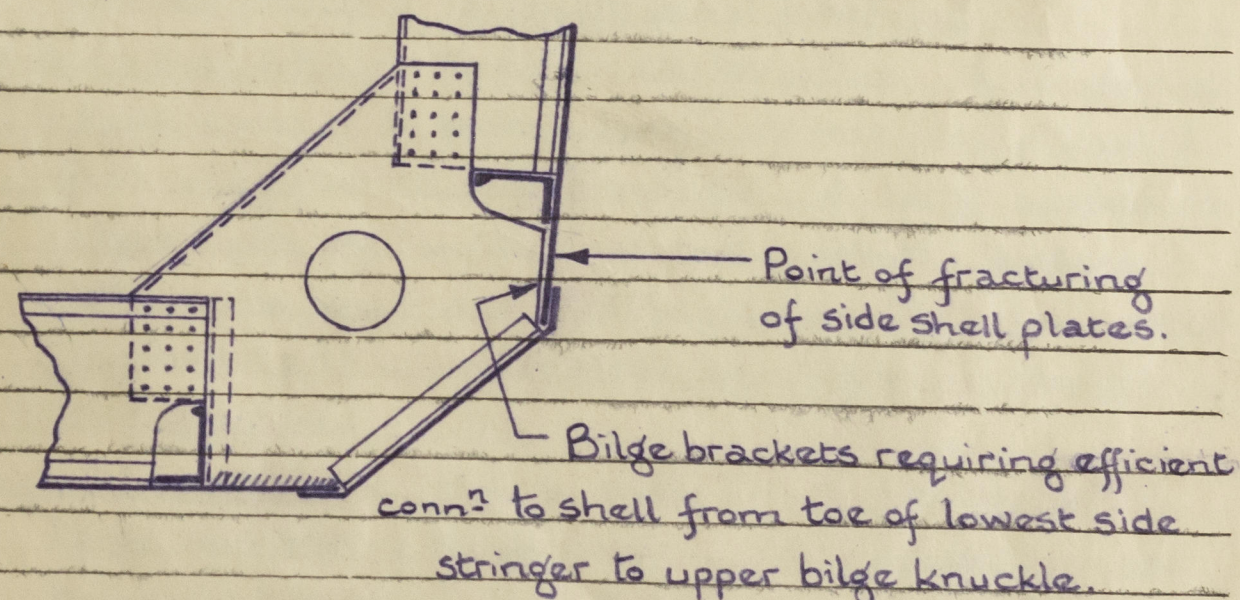 Point of fracturing
of side shell plates.
Bilge brackets requiring efficient
connⁿ to shell from toe of lowest side
stringer to upper bilge knuckle.